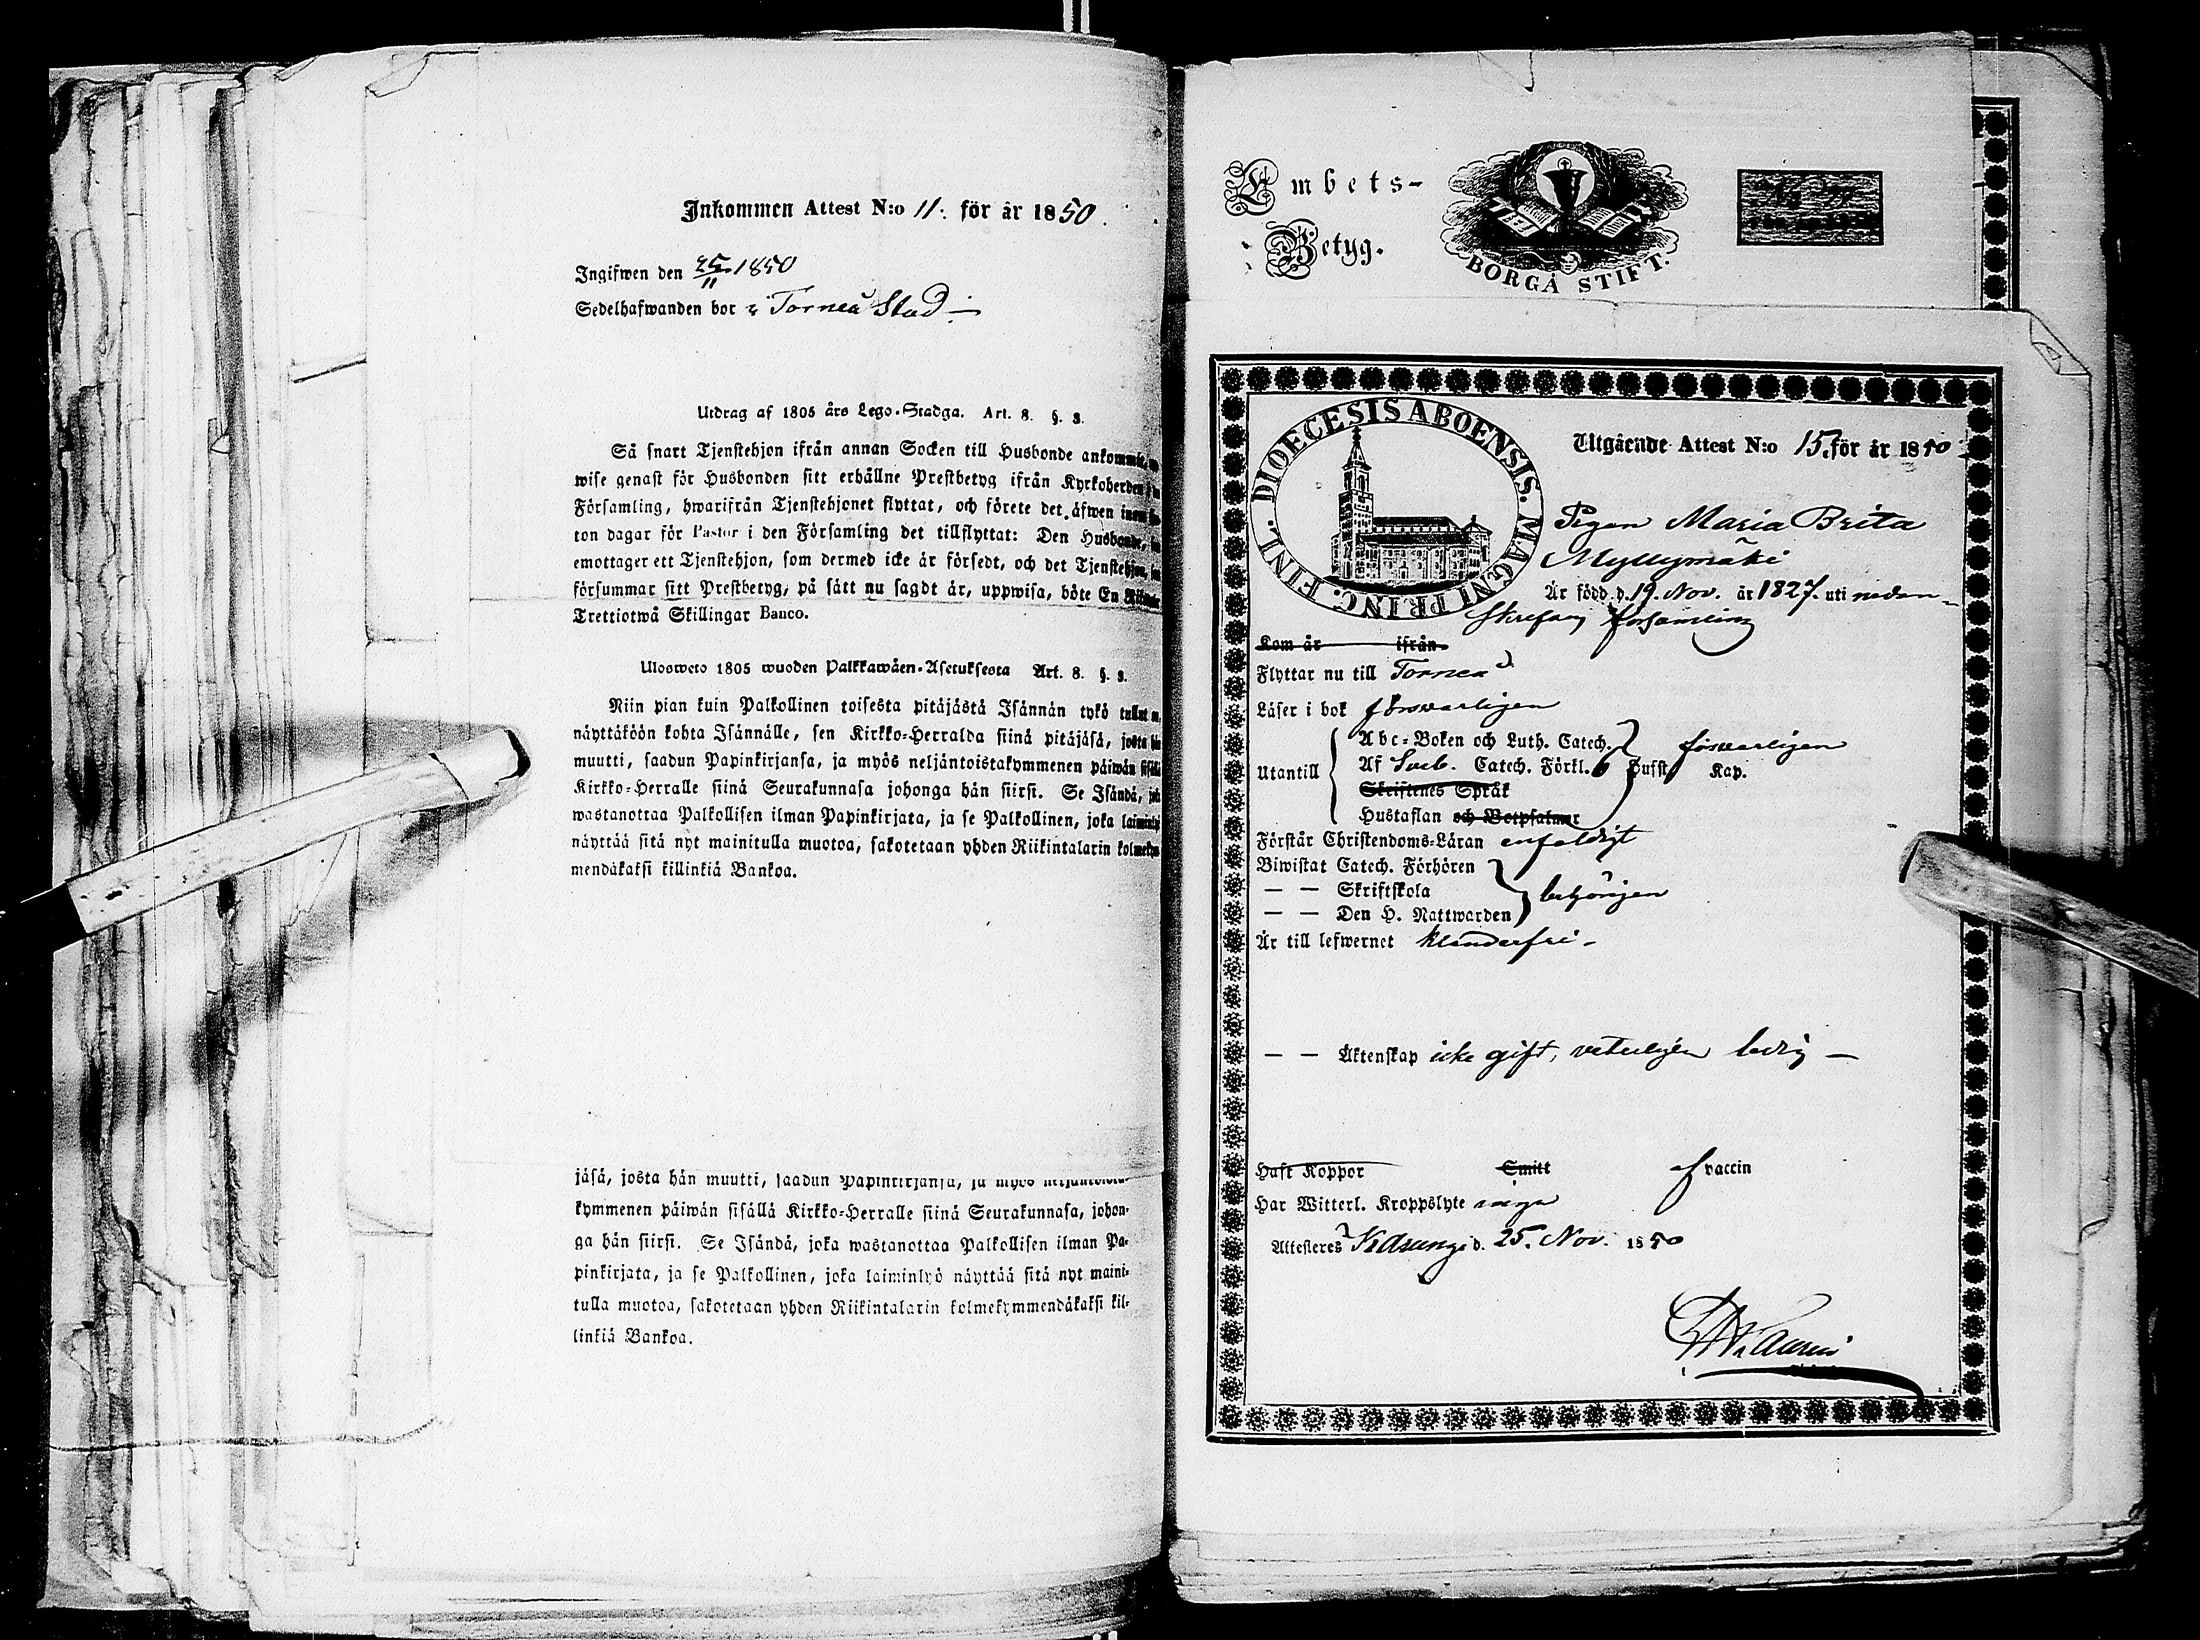 Inkommen Attest N:o 11. för år 1850.
Ingifwen den 25/11 1850
Sedelhafwanden bor i Torneå Stad
Utdrag af 1805 års Lego-Stadga. Art. 8. §. 3.
Så snart Tjenstehjon ifrån annan Socken till Husbonde
wise genast för Husbonden sitt erhållne Prestbetyg ifrån Kyrkoherden
Församling, hwarifrån Tjenstehjonet flyttat, och förete det äfwen
ton dagar för Pastor i den Församling det tillflyttat: Den Husbonde,
emottager ett Tjenstehjon, som dermed icke är försedt, och det
försummar sitt Prestbetyg, på sätt nu sagdt är, uppwisa, böte En
Trettiotwå Skillingar Banco.
Ulosweto 1805 wuoden Palkkawäen-Asetuksesta Art. 8. §. 3.
Niin pian kuin Palkollinen toisesta pitäjästä Isännän tykö
näyttäköön kohta Isännälle, sen Kirkko-Herralda siinä pitäjäsä,
muutti, saadun Papinkirjansa, ja myös neljäntoistakymmenen päiwän
Kirkko-Herralle siinä Seurakunnasa johonga hän siirsi. Se Isändä,
wastanottaa Palkollisen ilman Papinkirjata, ja se Palkollinen, joka
näyttää sitä nyt mainitulla muotoa, sakotetaan yhden Riikintalarin
mendäkaksi killinkiä Bankoa.
jäsä, josta hän muutti, saadun Papinkirjansa, ja myös
kymmenen päiwän sisällä Kirkko-Herralle siinä Seurakunnasa, johon-
ga hän siirsi. Se Isändä, joka wastanottaa Palkollisen ilman Pa-
pinkirjata, ja se Palkollinen, joka laiminlyö näyttää sitä nyt maini-
tulla muotoa, sakotetaan yhden Riikintalarin kolmekymmendäkaksi kil-
linkiä Bankoa.
Embets-
Betyg.
BORGÅ STIFT.
DIOECESIS ABOENSIS. MAGNI PRINC. FINL.
Utgående Attest N:o 15. för år 1850.
Pigan Maria Brita
Myllymäki
Är född d. 19. Nov. år 1827. uti nedan-
skrefwen församling
Kom år ifrån
Flyttar nu till Torneå
Läser i bok försvarligen
Utantill
Abc-Boken och Luth. Catech.
Af Sveb. Catech. Förkl. 6 Kap. försvarligen
Skriftenes Språk
Hustaflan och Botpsalmer
Förstår Christendoms-Läran enfaldigt
Biwistat Catech. Förhören
— — Skriftskola
— — Den H. Nattwarden
behörigen
Är till lefwernet klanderfri -
— — Äktenskap icke gift, veterligen ledig —
Haft Koppor Smitt vaccin
Har Witterl. Kroppslyte inga
Attesteres Karungi d. 25. Nov. 1850